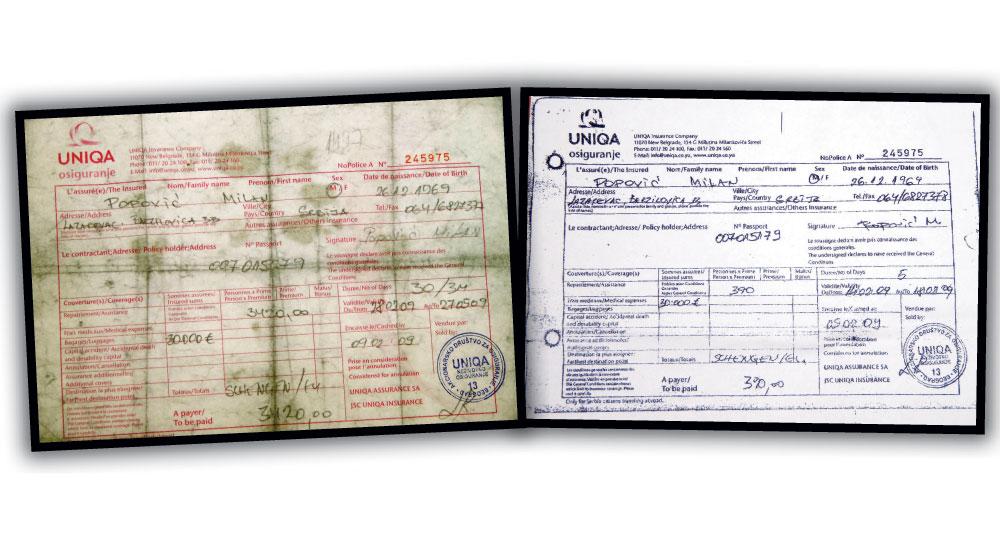 UNIQA
osiguranje
UNIQA Insurance Company
11070 New Belgrade, 134 G Milutina Milankovića Street
Phone: 011/ 20 24 100, Fax: 011/ 20 24 160
E.Mail: info@uniqa.co.yu, www.uniqa.co.yu
NoPolice A N° 245975
L'assuré(e)/The Insured Nom/Family name Prenom/First name Sex M/F Date de naissance/Date of Birth
POPOVIĆ MILAN 26.12.1969
Adresse/Address Ville/City
Pays/Country Tel./Fax
LAZAREVAC, BRZILOVICA BB
Autres assurances/Others Insurance
Le contractant;Adresse/ Policy holder;Address N° Passport
007015179
Signature
Le soussigne declare avoir pris connaissance des
conditions generales.
The undersigned declares to have received the General
Conditions
Couverture(s)/Coverage(s) Sommes assurees/
Insured sums Personnes x Prime
Persons x Premium Prime/
Premium Malus/
Bonus Duree/No of Days
30/3M
Repatriement/Assistance 3420,00
Validite/Validity
Du/From 28.02.09 Au/To 27.05.09
Frais medicaux/Medical expenses
Bagages/Luggages 30.000 €
Encaisse le/Cashed by
09.02.09
Vendue par:
Sold by:
Capital accident/ Accidental death
and durability capital
Annulation/Cancellation
Assurance additionnelle/
Additional covers
Destination la plus eloignee/
Furthest destination point
Totaux/Totals SCHENGEN/EU
Prise en consideration
pour l'annulation
Considered for annulation
UNIQA ASSURANCE SA
JSC UNIQA INSURANCE
A payer/
To be paid 3420,00
AKCIONARSKO DRUŠTVO ZA OSIGURANJE
UNIQA
NEŽIVOTNO
OSIGURANJE
13
BEOGRAD
UNIQA
osiguranje
UNIQA Insurance Company
11070 New Belgrade, 134 G Milutina Milankovića Street
Phone: 011/ 20 24 100, Fax: 011/ 20 24 160
E.Mail: info@uniqa.co.yu, www.uniqa.co.yu
NoPolice A N° 245975
L'assuré(e)/The Insured Nom/Family name Prenom/First name Sex M/F Date de naissance/Date of Birth
POPOVIĆ MILAN 26.12.1969
Adresse/Address Ville/City
Pays/Country Tel./Fax 064/6827378
LAZAREVAC, BRZILOVICA BB
Autres assurances/Others Insurance
Le contractant;Adresse/ Policy holder;Address N° Passport
007015179
Signature Popović M
Le soussigne declare avoir pris connaissance des
conditions generales.
The undersigned declares to have received the General
Conditions
Couverture(s)/Coverage(s) Sommes assurees/
Insured sums Personnes x Prime
Persons x Premium Prime/
Premium Malus/
Bonus Duree/No of Days
5
Repatriement/Assistance 390
Validite/Validity
Du/From Au/To
Frais medicaux/Medical expenses 30.000 €
Bagages/Luggages
Vendue par:
Sold by:
09.02.09
Capital accident/ Accidental death
and durability capital
Annulation/Cancellation
Destination la plus eloignee/
Furthest destination point
Totaux/Totals SCHENGEN/EU
Prise en consideration
pour l'annulation
Considered for annulation
UNIQA ASSURANCE SA
JSC UNIQA INSURANCE
A payer/
To be paid 390,00
Only for Serbia citizens traveling abroad.
AKCIONARSKO DRUŠTVO ZA OSIGURANJE
UNIQA
NEŽIVOTNO
OSIGURANJE
13
BEOGRAD